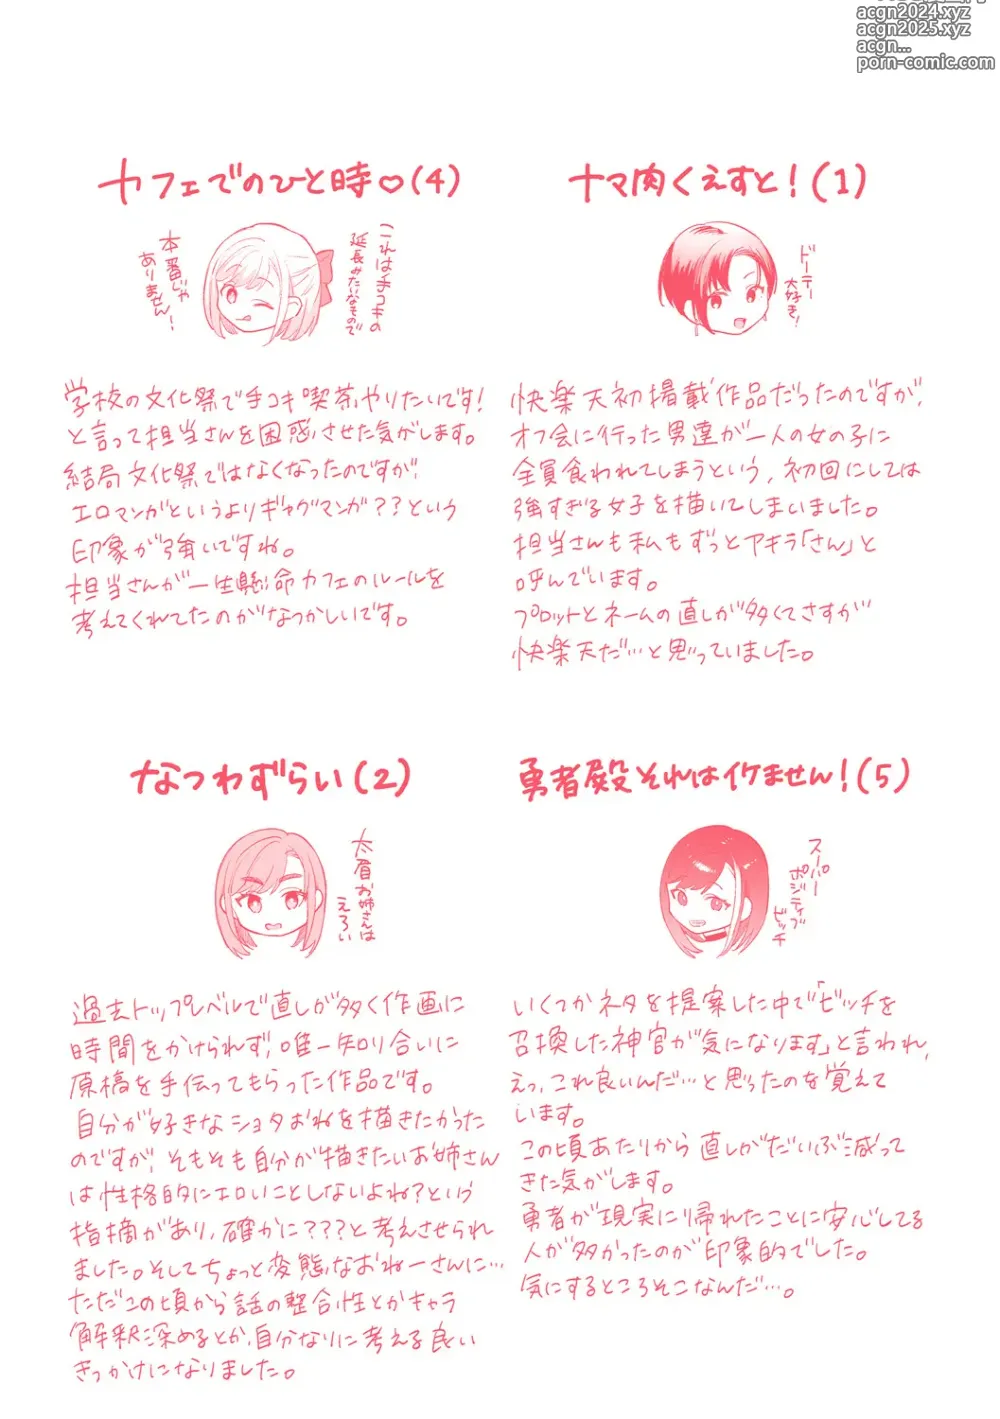 acgn2024.xyz
acgn2025.xyz
acgn...
porn-comic.com
ナマ肉くえすと！(1)
ドーテー
大好き！
快楽天初掲載作品だったのですが、
オフ会に行った男達が一人の女の子に
全員食われてしまうという、初回にしては
強すぎる女子を描いてしまいました。
担当さんも私もずっとアキラ「さん」と
呼んでいます。
プロットとネームの直しが多くてさすが
快楽天だ…と思っていました。
カフェでのひと時♡(4)
これは手コキの
延長みたいなもので
本番じゃ
ありません！
学校の文化祭で手コキ喫茶やりたいです！
と言って担当さんを困惑させた気がします。
結局文化祭ではなくなったのですが
エロマンガというよりギャグマンガ？？という
印象が強いですね。
担当さんが一生懸命カフェのルールを
考えてくれてたのがなつかしいです。
勇者殿それはイケません！(5)
スーパー
ポジティブ
ビッチ
いくつかネタを提案した中で「ビッチを
召喚した神官が気になります」と言われ、
えっ、これ良いんだ…と思ったのを覚えて
います。
この頃あたりから直しがだいぶ減って
きた気がします。
勇者が現実に帰れたことに安心してる
人が多かったのが印象的でした。
気にするところそこなんだ…。
なつわずらい(2)
太眉お姉さんは
えろい
過去トップレベルで直しが多く作画に
時間をかけられず、唯一知り合いに
原稿を手伝ってもらった作品です。
自分が好きなショタおねを描きたかった
のですが、そもそも自分が描きたいお姉さん
は性格的にエロいことしないよね？という
指摘があり、確かに？？？と考えさせられ
ました。そしてちょっと変態なおねーさんに…
ただこの頃から話の整合性とかキャラ
解釈深めるとか、自分なりに考える良い
きっかけになりました。